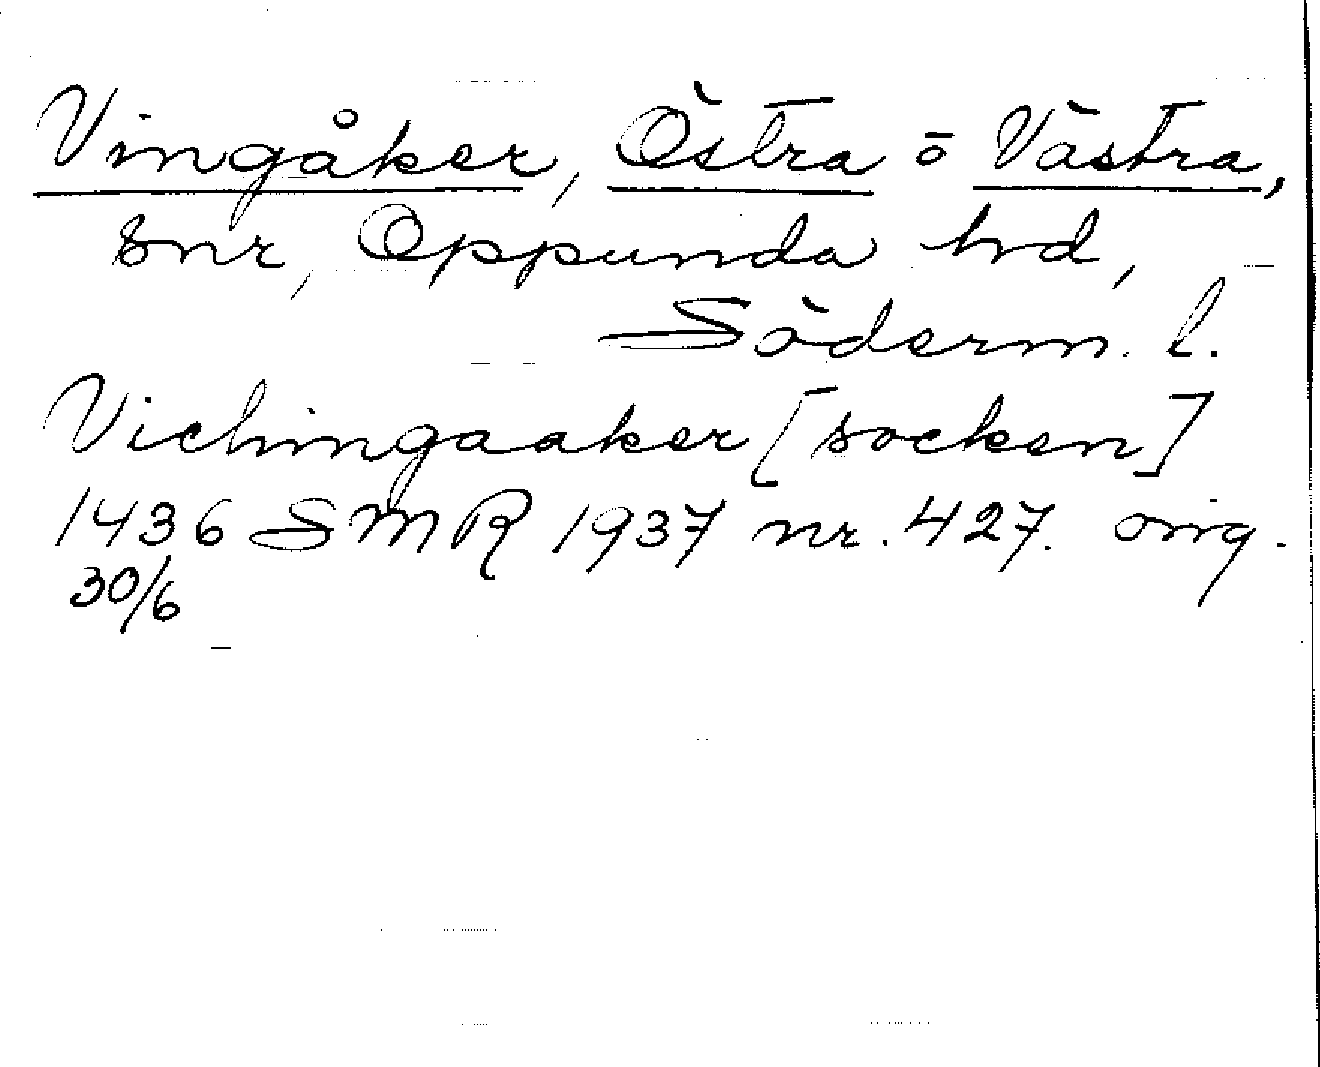 Vingåker, Östra o Västra,
snr, Oppunda hd,
Söderm. l.
Vichingaaker [socken]
1436 SMR 1937 nr. 427. orig.
30/6